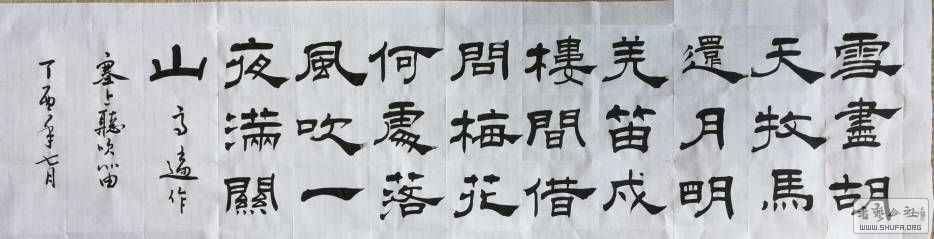 雪盡胡
天牧馬
還月明
羌笛戍
樓間借
問梅花
何處落
風吹一
夜滿關
山
高適作
塞上聽吹笛
丁酉年七月
書藝公社
WWW.SHUFA.ORG